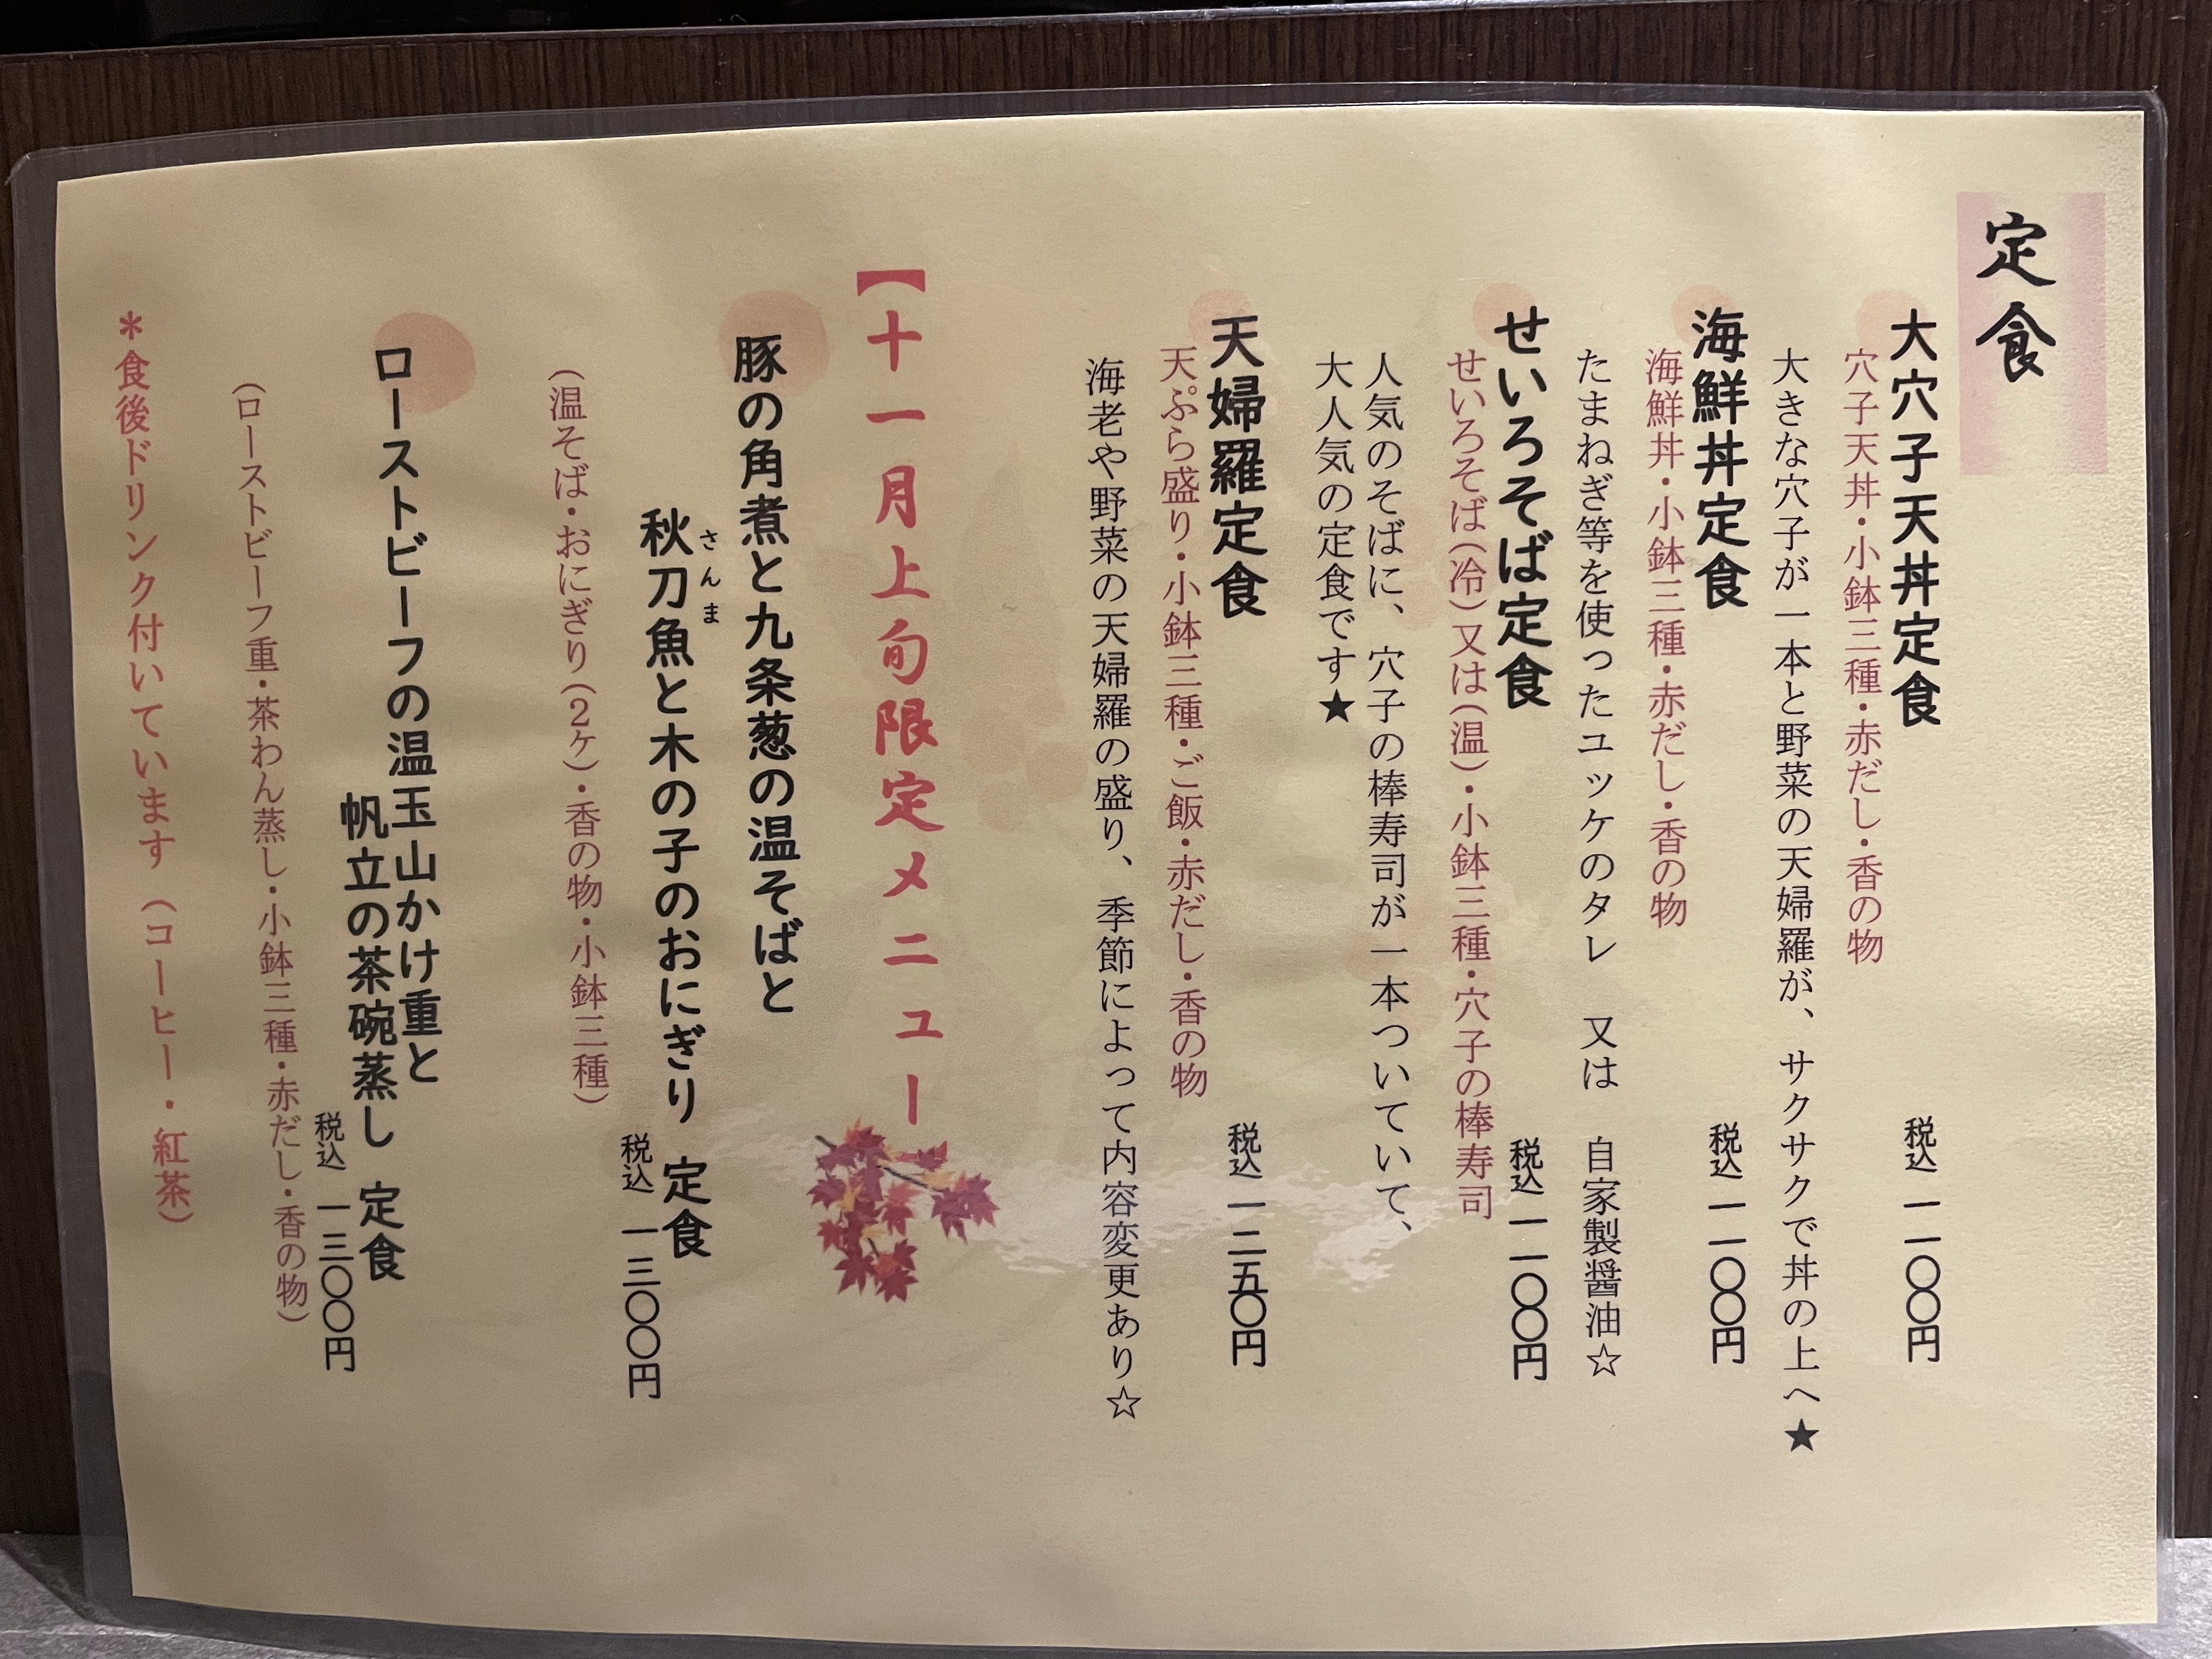 定食
大穴子天丼定食
税込 一一〇〇円
穴子天丼・小鉢三種・赤だし・香の物
大きな穴子が一本と野菜の天婦羅が、サクサクで丼の上へ★
海鮮丼定食
税込 一一〇〇円
海鮮丼・小鉢三種・赤だし・香の物
たまねぎ等を使ったユッケのタレ 又は 自家製醤油☆
せいろそば定食
税込 一一〇〇円
せいろそば(冷)又は(温)・小鉢三種・穴子の棒寿司
人気のそばに、穴子の棒寿司が一本ついていて、
大人気の定食です★
天婦羅定食
税込 一二五〇円
天ぷら盛り・小鉢三種・ご飯・赤だし・香の物
海老や野菜の天婦羅の盛り、季節によって内容変更あり☆
【十一月上旬限定メニュー
豚の角煮と九条葱の温そばと
さんま
秋刀魚と木の子のおにぎり 定食
税込 一三〇〇円
(温そば・おにぎり(2ケ)・香の物・小鉢三種)
ローストビーフの温玉山かけ重と
帆立の茶碗蒸し 定食
税込 一三〇〇円
(ローストビーフ重・茶わん蒸し・小鉢三種・赤だし・香の物)
＊食後ドリンク付いています(コーヒー・紅茶)